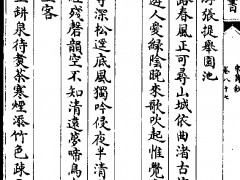 卷八十七
游張提舉園池
路春風正可尋山城依曲渚古
遊人愛綠陰晚來歌吹起惟覺
寺深松逕底風獨吟侵夜半清
殘磬韻空不知清遠夢啼鳥
客
缾泉待煮茶寒煙添竹色疎